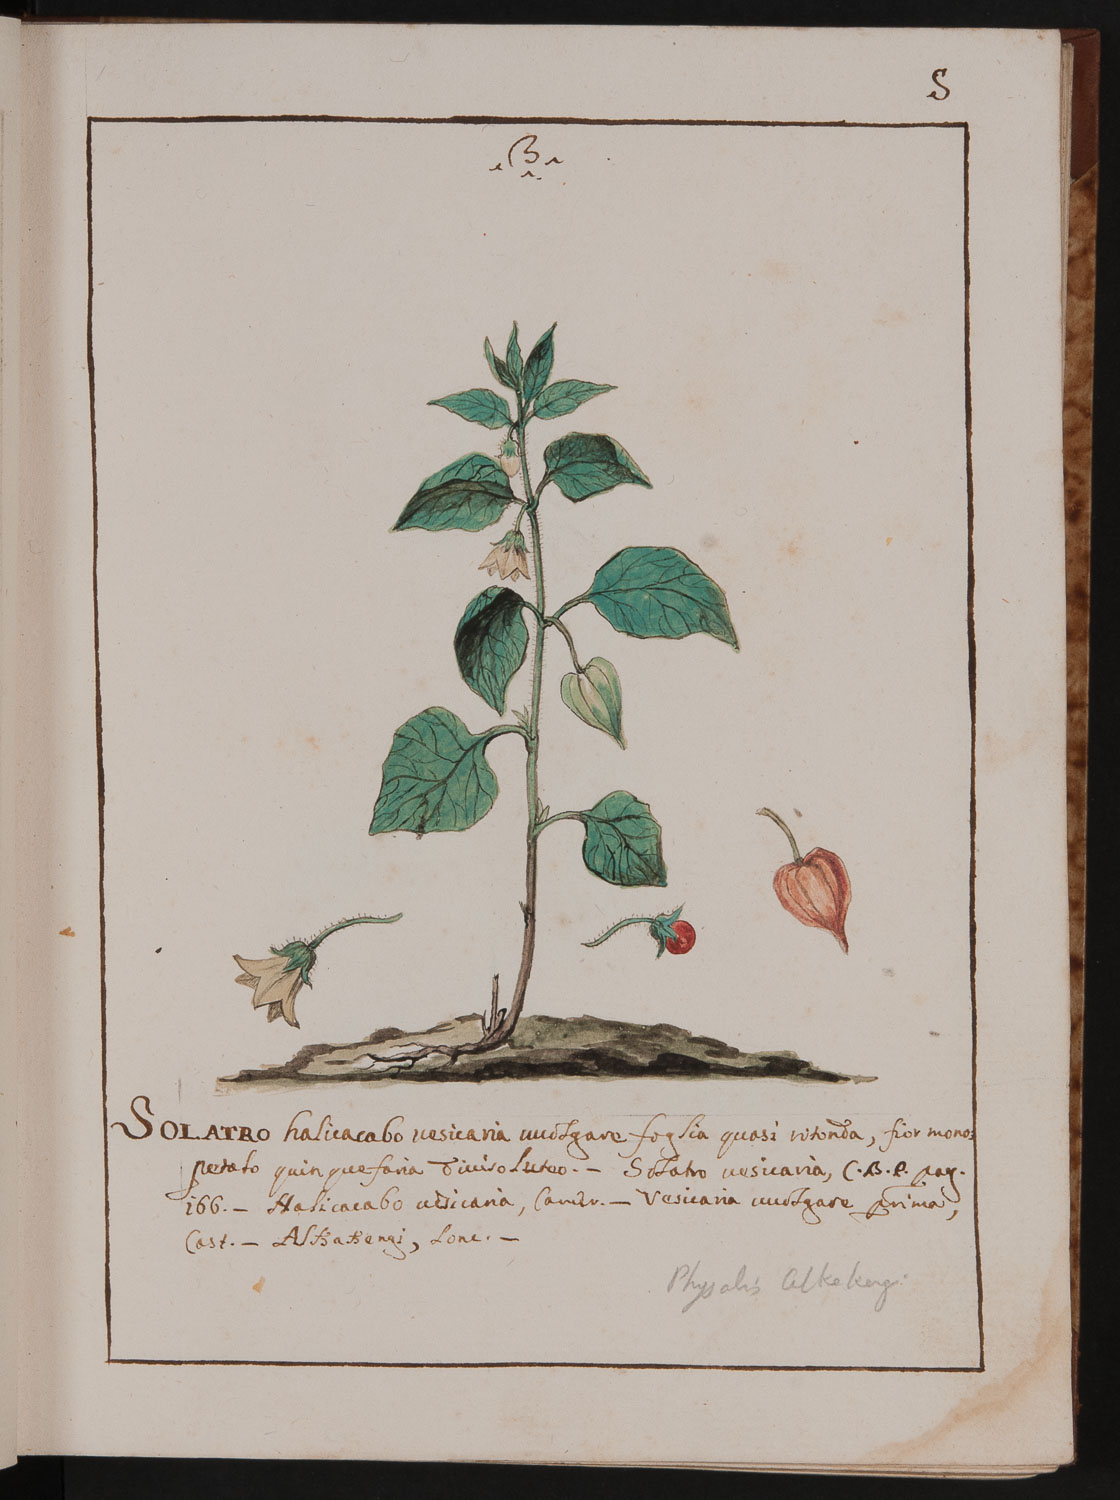 S
B
SOLATRO halicacabo uesicaria uuolgare foglia quasi ritonda, fior mono=
petalo quinquefaria diuiso luteo. — Solatro uesicaria, C.B.P. pag.
166. — Halicacabo uesicaria, Camer. — Vesicaria uuolgare prima,
Cast. — AlKaKengi, Lonc. —
Physalis alkekengi